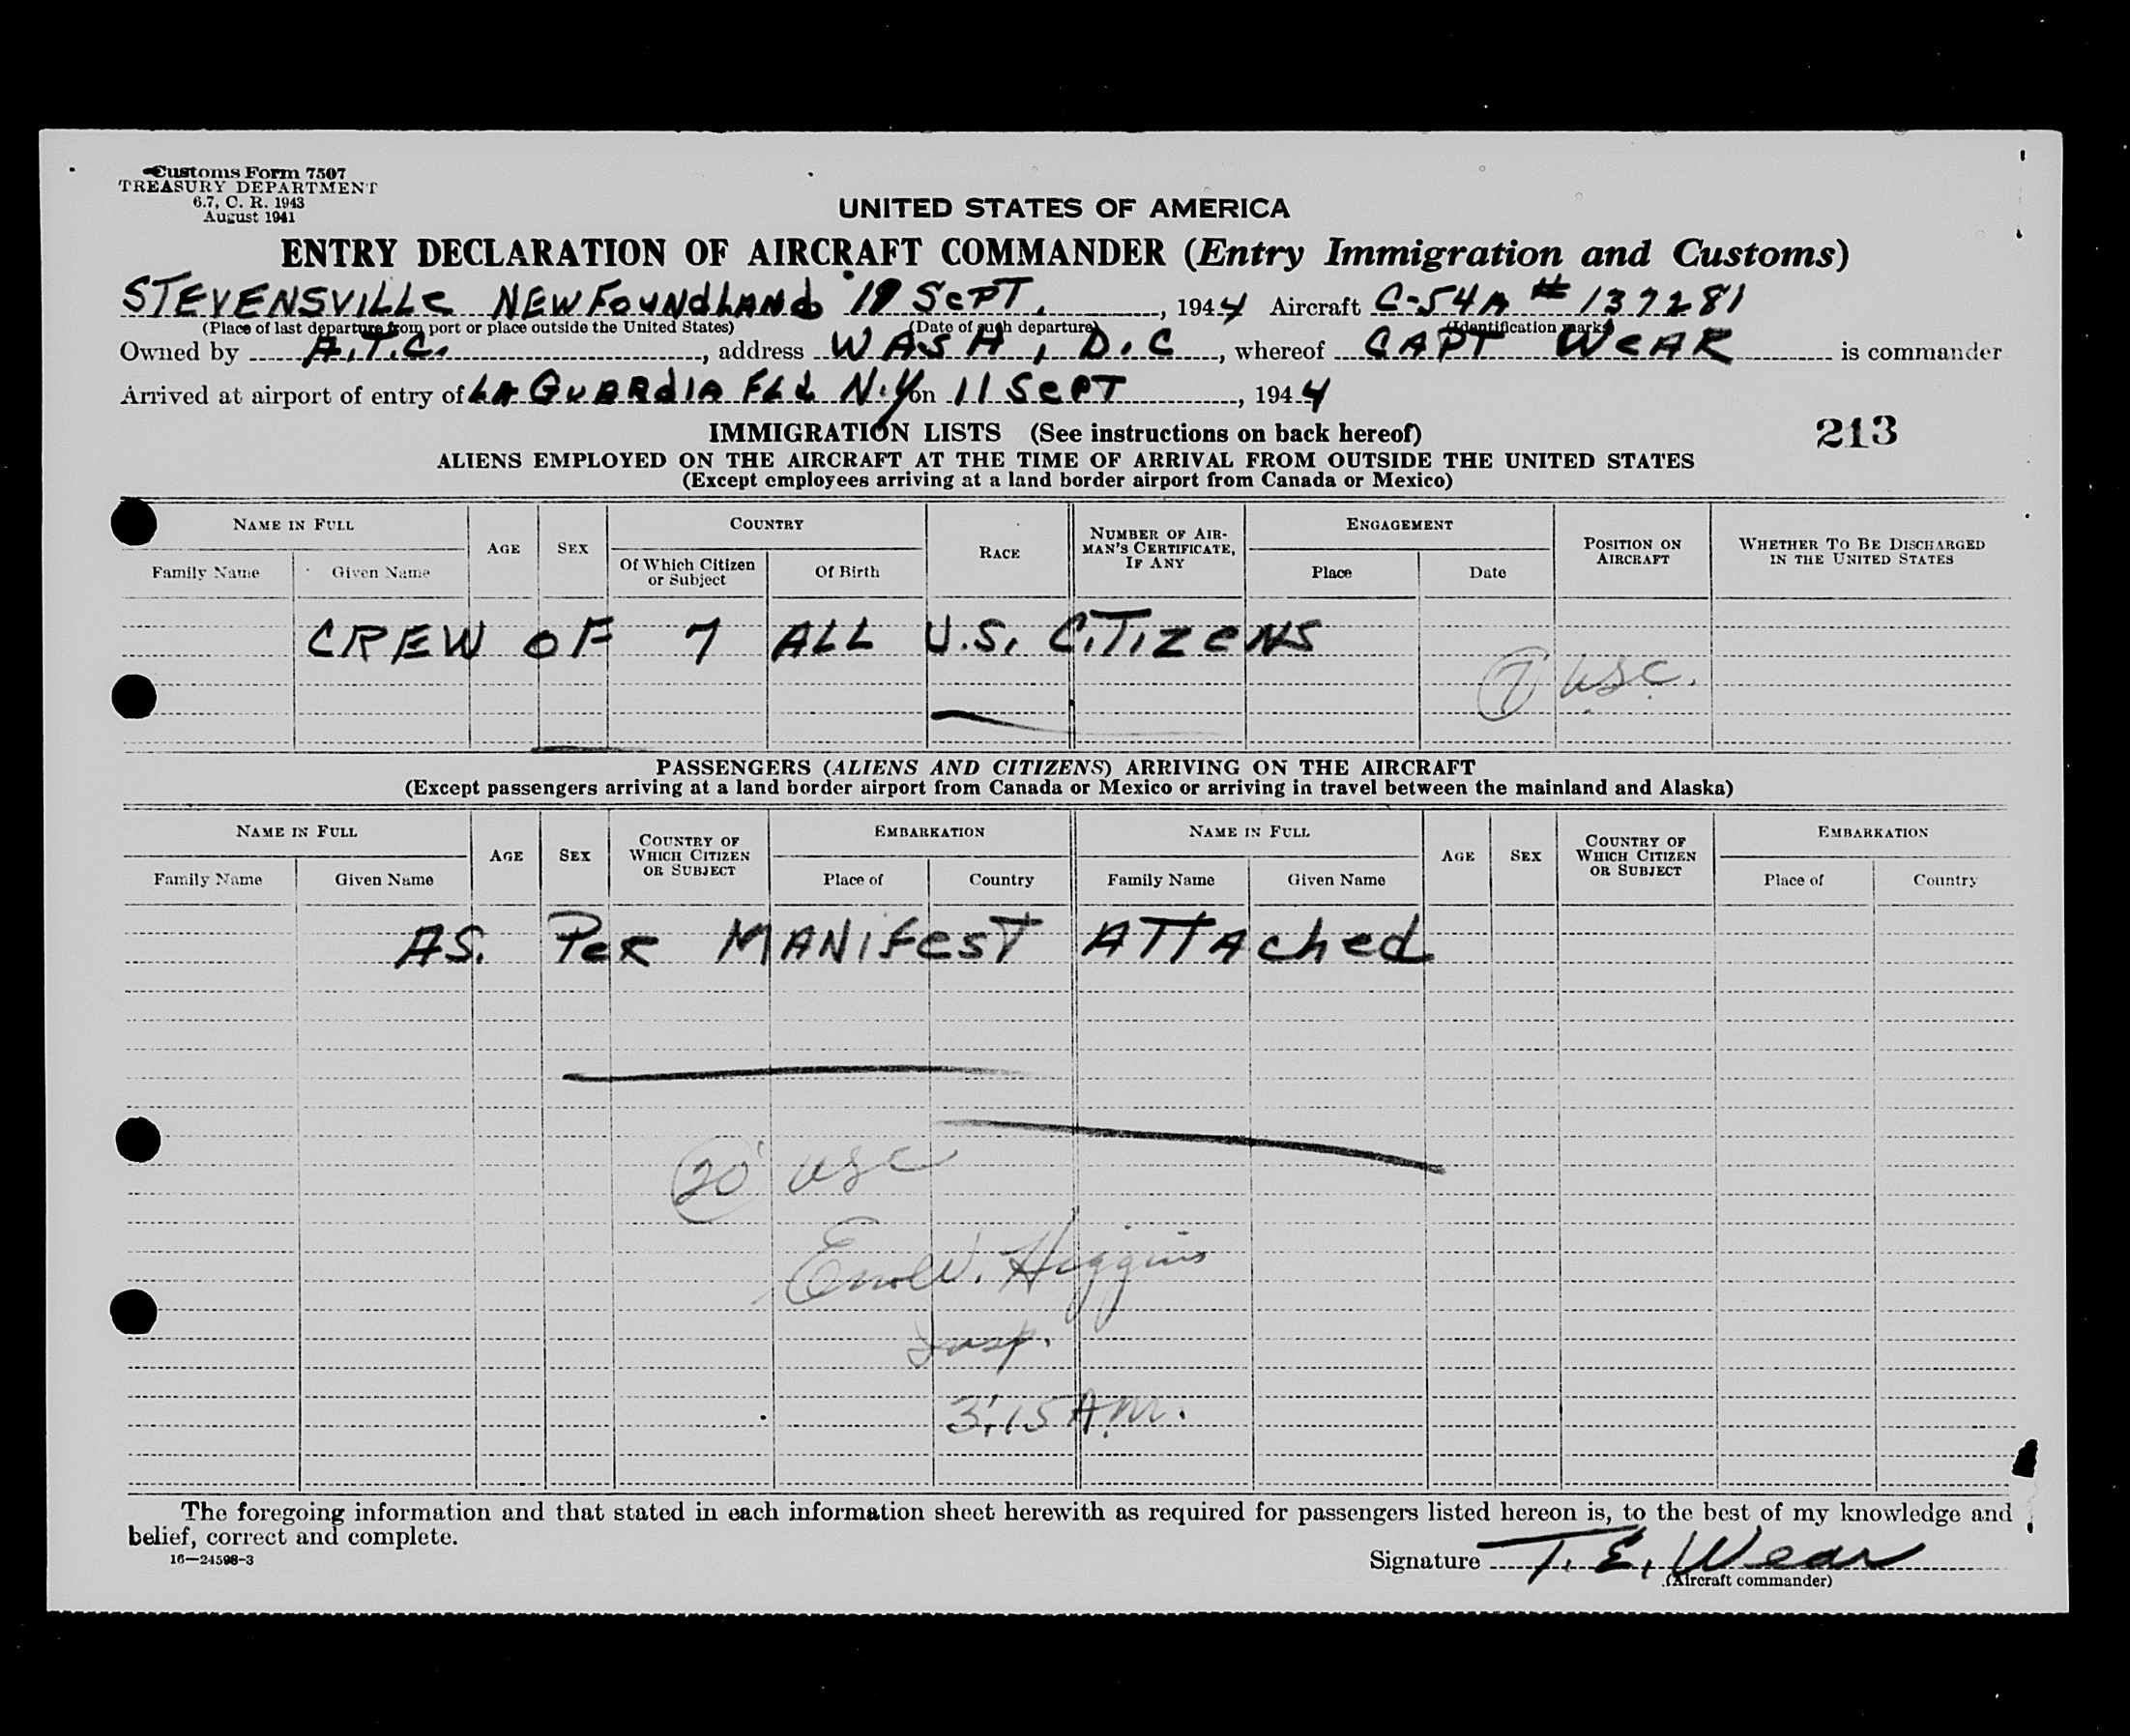 Customs Form 7507
TREASURY DEPARTMENT
6.7, C. R. 1943
August 1941
UNITED STATES OF AMERICA
ENTRY DECLARATION OF AIRCRAFT COMMANDER (Entry Immigration and Customs)
STEVENSVILLE NEWFOUNDLAND SEPT. , 1944 Aircraft C-54A # 137281
(Place of last departure from port or place outside the United States) (Date of such departure) (Identification marks)
Owned by A.T.C. , address WASH, D.C , whereof CAPT WEAR is commander
Arrived at airport of entry of LA GUARDIA FLd N.Y on 11 SEPT , 1944
213
IMMIGRATION LISTS (See instructions on back hereof)
ALIENS EMPLOYED ON THE AIRCRAFT AT THE TIME OF ARRIVAL FROM OUTSIDE THE UNITED STATES
(Except employees arriving at a land border airport from Canada or Mexico)
NAME IN FULL AGE SEX COUNTRY RACE NUMBER OF AIRMAN'S CERTIFICATE, IF ANY ENGAGEMENT POSITION ON AIRCRAFT WHETHER TO BE DISCHARGED IN THE UNITED STATES
Family Name Given Name Of Which Citizen or Subject Of Birth Place Date
CREW OF 7 ALL U.S. CITIZENS
7 USC.
PASSENGERS (ALIENS AND CITIZENS) ARRIVING ON THE AIRCRAFT
(Except passengers arriving at a land border airport from Canada or Mexico or arriving in travel between the mainland and Alaska)
NAME IN FULL AGE SEX COUNTRY OF WHICH CITIZEN OR SUBJECT EMBARKATION NAME IN FULL AGE SEX COUNTRY OF WHICH CITIZEN OR SUBJECT EMBARKATION
Family Name Given Name Place of Country Family Name Given Name Place of Country
AS. Per MANIFEST ATTAched
20 USC
W. Higgins
Insp.
3:15 A.M.
The foregoing information and that stated in each information sheet herewith as required for passengers listed hereon is, to the best of my knowledge and
belief, correct and complete.
16—24598-3
Signature T. E. Wear
(Aircraft commander)